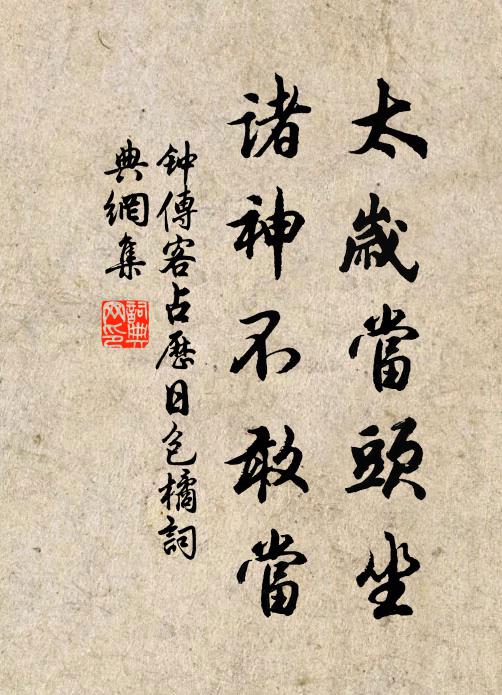 太歲當頭坐
諸神不敢當
钟傳客占歷日包橘詞
典網集
詞典
网印